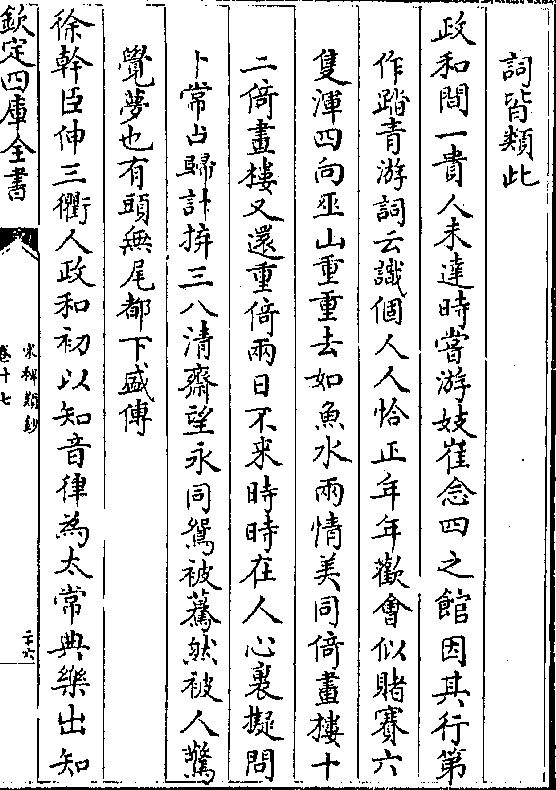 詞皆類此
政和間一貴人未達時嘗游妓崔念四之館因其行第
作踏青游詞云識個人人恰正年年歡會似賭賽六
隻渾四向巫山重重去如魚水兩情美同倚畫樓十
二倚畫樓又還重倚兩日不來時時在人心裏擬問
卜常占歸計拚三八清齋望永同鴛被驀然被人驚
覺夢也有頭無尾都下盛傳
徐幹臣伸三衢人政和初以知音律為太常典樂出知
欽定四庫全書
宋稗類鈔
卷十七
二十六